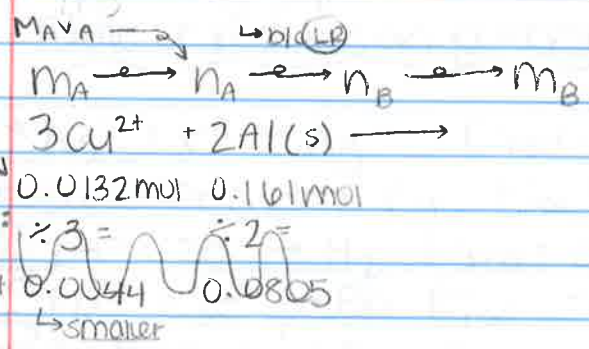 MAVA → ↳ b/c LR
mA → nA → nB → mB
3Cu²⁺ + 2Al(s) →
0.0132mol 0.161mol
÷3= ÷2=
0.0044 0.0805
↳smaller